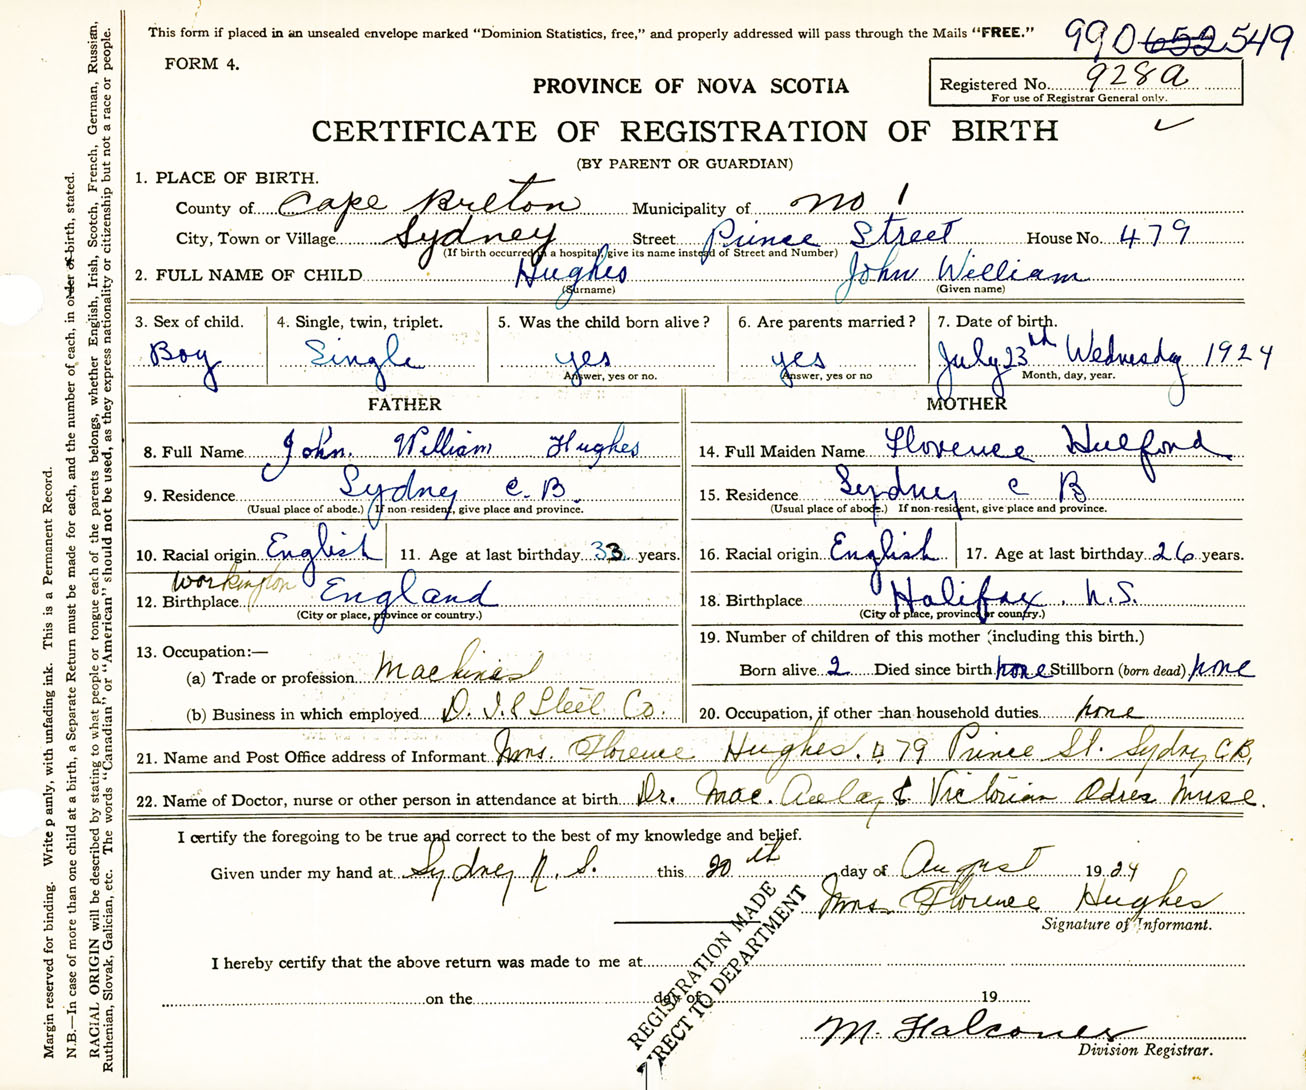 This form if placed in an unsealed envelope marked "Dominion Statistics, free," and properly addressed will pass through the Mails "FREE."
990 652 549
FORM 4.
PROVINCE OF NOVA SCOTIA
Registered No. 928a
For use of Registrar General only.
CERTIFICATE OF REGISTRATION OF BIRTH
(BY PARENT OR GUARDIAN)
1. PLACE OF BIRTH.
County of Cape Breton Municipality of no 1
City, Town or Village Sydney Street Prince Street House No. 479
(If birth occurred in a hospital, give its name instead of Street and Number)
2. FULL NAME OF CHILD Hughes John William
(Surname) (Given name)
3. Sex of child. 4. Single, twin, triplet. 5. Was the child born alive? 6. Are parents married? 7. Date of birth.
Boy Single yes yes July 23rd Wednesday 1924
Answer, yes or no. Answer, yes or no Month, day, year.
FATHER MOTHER
8. Full Name John William Hughes 14. Full Maiden Name Florence Hulford
9. Residence Sydney C. B. 15. Residence Sydney C B
(Usual place of abode.) If non-resident, give place and province. (Usual place of abode.) If non-resident, give place and province.
10. Racial origin English 11. Age at last birthday 33 years. 16. Racial origin English 17. Age at last birthday 26 years.
Workington
12. Birthplace England 18. Birthplace Halifax, N.S.
(City or place, province or country.) (City or place, province or country.)
19. Number of children of this mother (including this birth.)
13. Occupation:—
(a) Trade or profession Machinist Born alive 2 Died since birth none Stillborn (born dead) none
(b) Business in which employed D. I. & Steel Co. 20. Occupation, if other than household duties none
21. Name and Post Office address of Informant Mrs. Florence Hughes. 479 Prince St. Sydney C.B.
22. Name of Doctor, nurse or other person in attendance at birth Dr. & Victorian
I certify the foregoing to be true and correct to the best of my knowledge and belief.
Given under my hand at Sydney N. S. this 20th day of August 1924
Mrs. Florence Hughes
Signature of Informant.
REGISTRATION MADE
DIRECT TO DEPARTMENT
I hereby certify that the above return was made to me at
on the day of 19
M. Falconer
Division Registrar.
Margin reserved for binding. Write plainly, with unfading ink. This is a Permanent Record.
N.B.—In case of more than one child at a birth, a Separate Return must be made for each, and the number of each, in order of birth, stated.
RACIAL ORIGIN will be described by stating to what people or tongue each of the parents belongs, whether English, Irish, Scotch, French, German, Russian,
Ruthenian, Slovak, Galician, etc. The words "Canadian" or "American" should not be used, as they express nationality or citizenship but not a race or people.